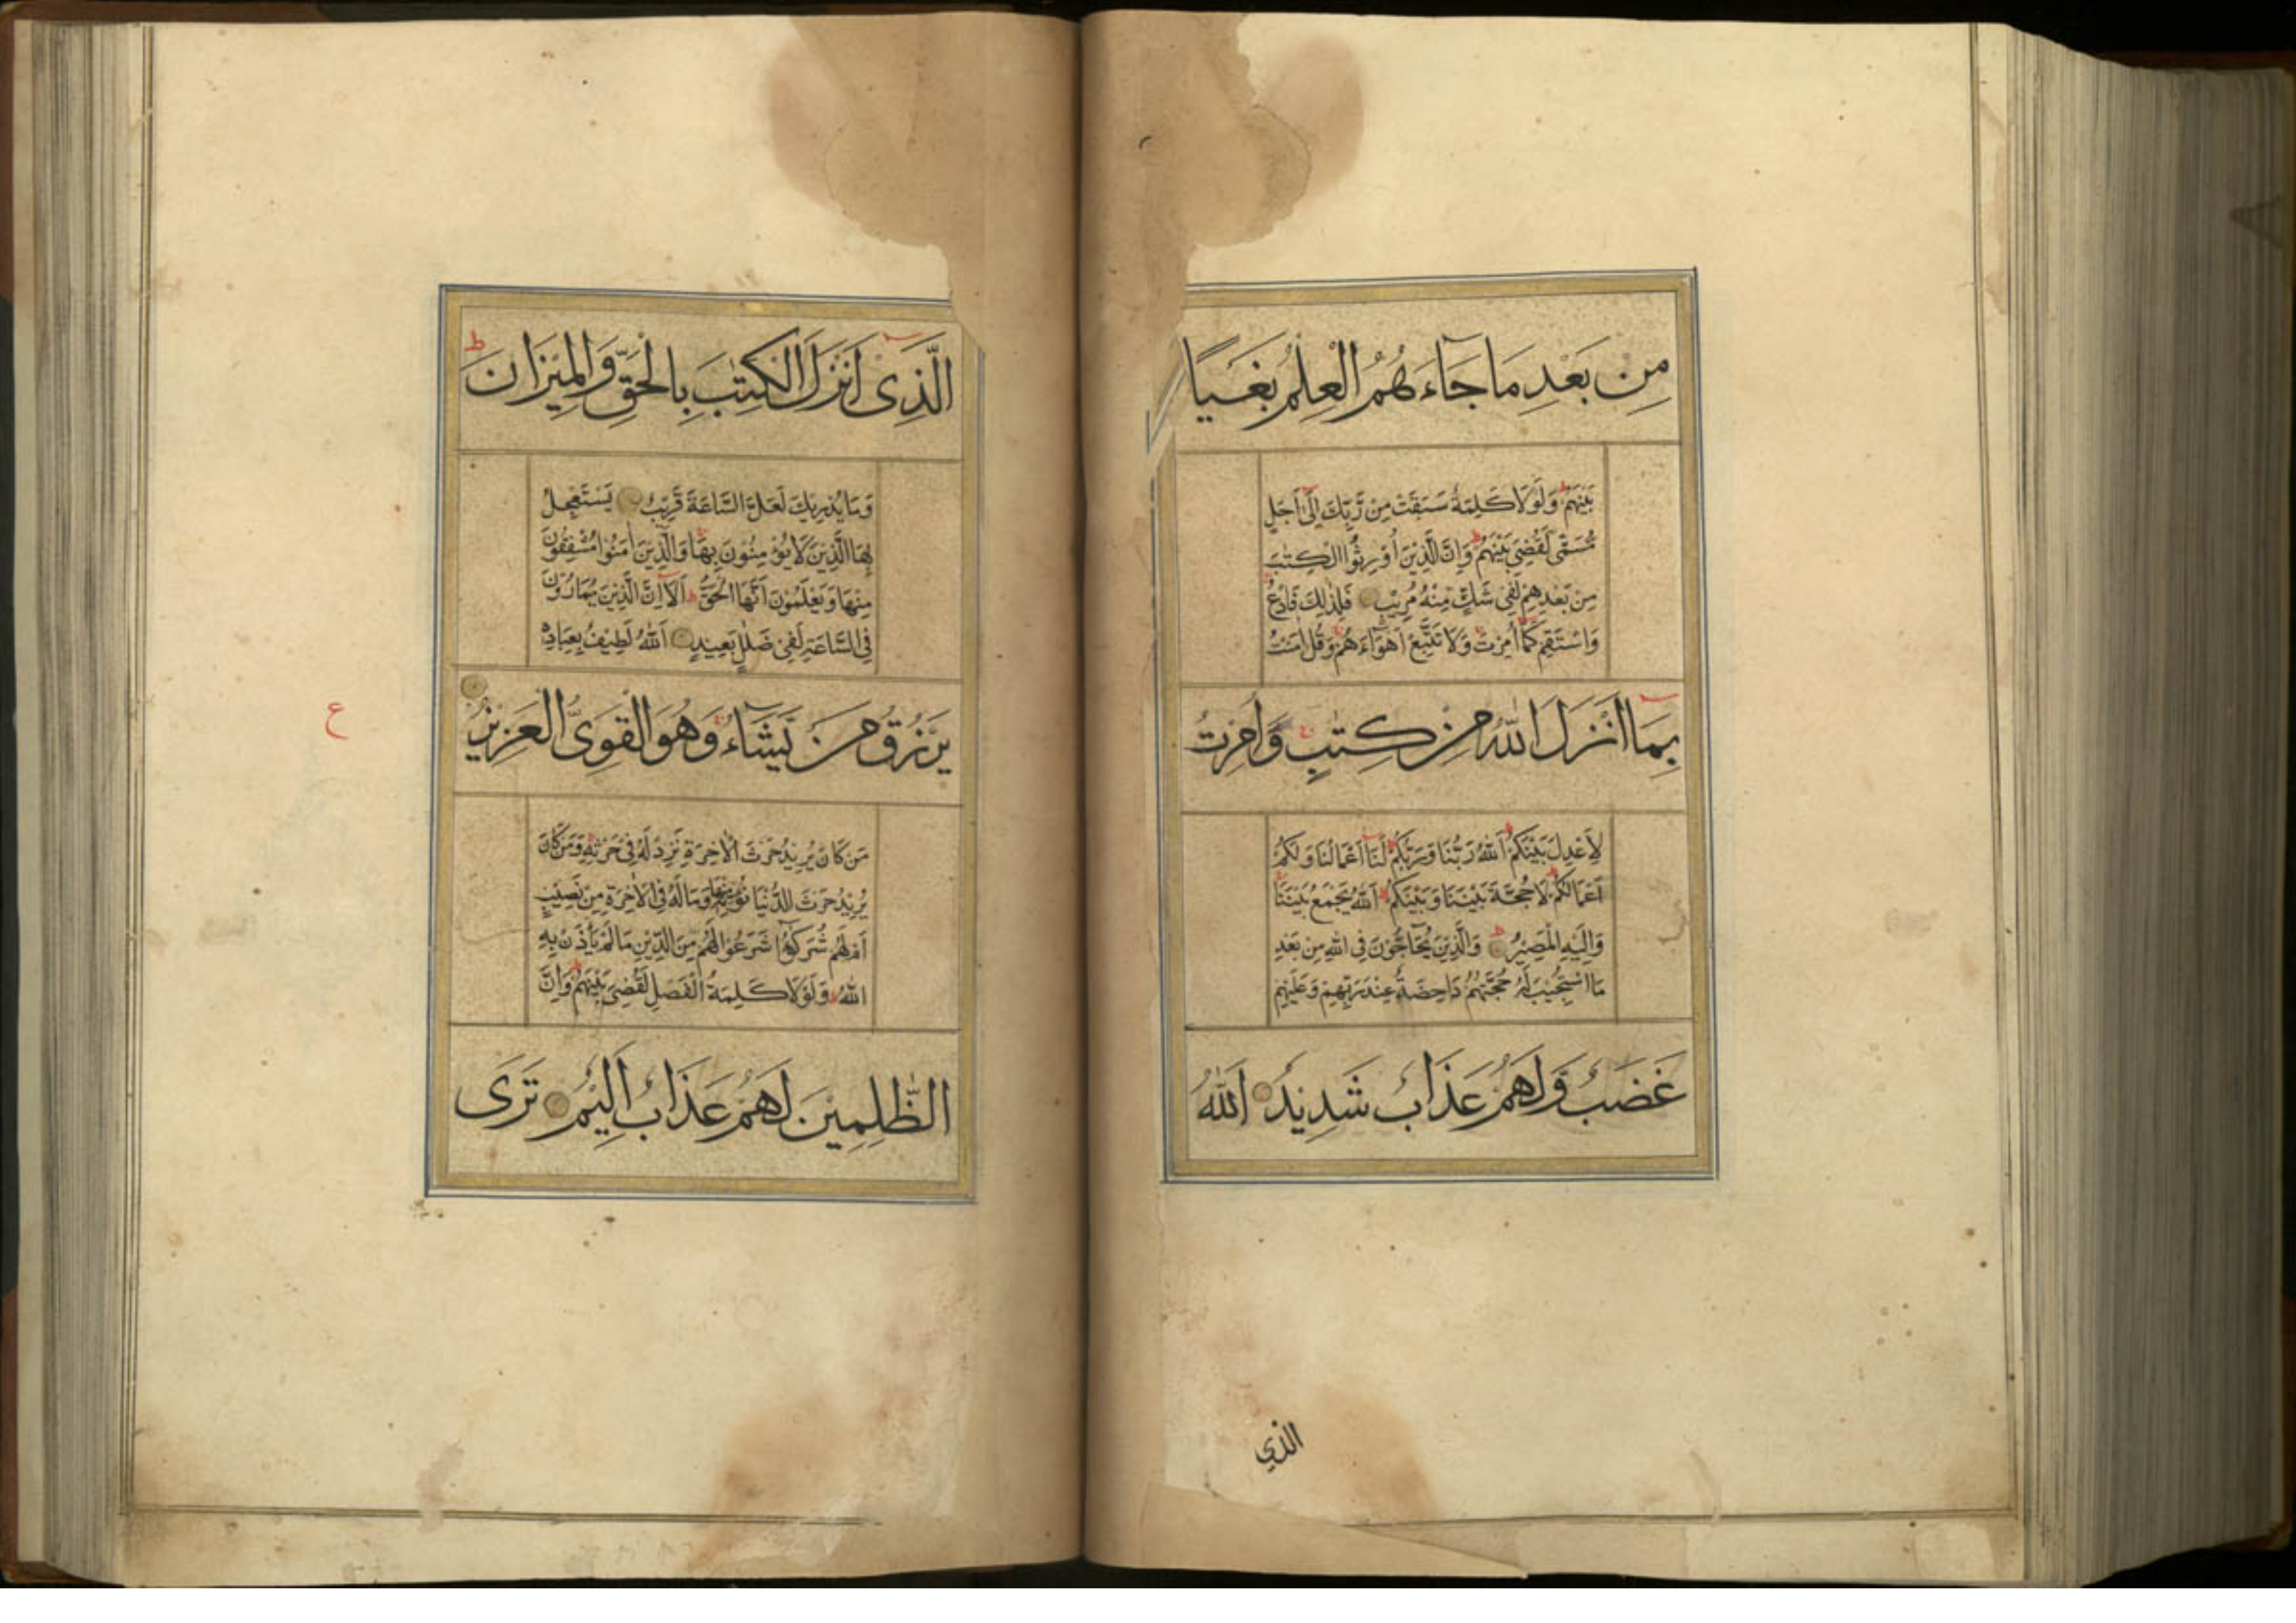 مِن بَعْدِ مَا جَاءَهُمُ الْعِلْمُ بَغْيًا
بَيْنَهُمْ وَلَوْلَا كَلِمَةٌ سَبَقَتْ مِنْ رَّبِّكَ إِلَىٰ أَجَلٍ
مُّسَمًّى لَّقُضِيَ بَيْنَهُمْ وَإِنَّ الَّذِينَ أُورِثُوا الْكِتٰبَ
مِنْ بَعْدِهِمْ لَفِي شَكٍّ مِّنْهُ مُرِيبٍ فَلِذٰلِكَ فَادْعُ
وَاسْتَقِمْ كَمَا أُمِرْتَ وَلَا تَتَّبِعْ أَهْوَاءَهُمْ وَقُلْ اٰمَنْتُ
بِمَا أَنْزَلَ اللّٰهُ مِنْ كِتٰبٍ وَأُمِرْتُ
لِأَعْدِلَ بَيْنَكُمْ اَللّٰهُ رَبُّنَا وَرَبُّكُمْ لَنَا أَعْمَالُنَا وَلَكُمْ
أَعْمَالُكُمْ لَا حُجَّةَ بَيْنَنَا وَبَيْنَكُمْ اَللّٰهُ يَجْمَعُ بَيْنَنَا
وَإِلَيْهِ الْمَصِيرُ وَالَّذِينَ يُحَاجُّونَ فِي اللّٰهِ مِنْ بَعْدِ
مَا اسْتُجِيبَ لَهُ حُجَّتُهُمْ دَاحِضَةٌ عِنْدَ رَبِّهِمْ وَعَلَيْهِمْ
غَضَبٌ وَّلَهُمْ عَذَابٌ شَدِيدٌ اَللّٰهُ
الذي
الَّذِي أَنْزَلَ الْكِتٰبَ بِالْحَقِّ وَالْمِيزَانَ ط
وَمَا يُدْرِيكَ لَعَلَّ السَّاعَةَ قَرِيبٌ يَسْتَعْجِلُ
بِهَا الَّذِينَ لَا يُؤْمِنُونَ بِهَا وَالَّذِينَ اٰمَنُوا مُشْفِقُونَ
مِنْهَا وَيَعْلَمُونَ أَنَّهَا الْحَقُّ أَلَا إِنَّ الَّذِينَ يُمَارُونَ
فِي السَّاعَةِ لَفِي ضَلٰلٍ بَعِيدٍ اَللّٰهُ لَطِيفٌ بِعِبَادِهِ
يَرْزُقُ مَنْ يَّشَاءُ وَهُوَ الْقَوِيُّ الْعَزِيزُ
ع
مَنْ كَانَ يُرِيدُ حَرْثَ الْاٰخِرَةِ نَزِدْ لَهُ فِي حَرْثِهِ وَمَنْ كَانَ
يُرِيدُ حَرْثَ الدُّنْيَا نُؤْتِهِ مِنْهَا وَمَا لَهُ فِي الْاٰخِرَةِ مِنْ نَصِيبٍ
أَمْ لَهُمْ شُرَكٰؤُا شَرَعُوا لَهُمْ مِنَ الدِّينِ مَا لَمْ يَأْذَنْ بِهِ
اللّٰهُ وَلَوْلَا كَلِمَةُ الْفَصْلِ لَقُضِيَ بَيْنَهُمْ وَإِنَّ
الظّٰلِمِينَ لَهُمْ عَذَابٌ أَلِيمٌ تَرَى